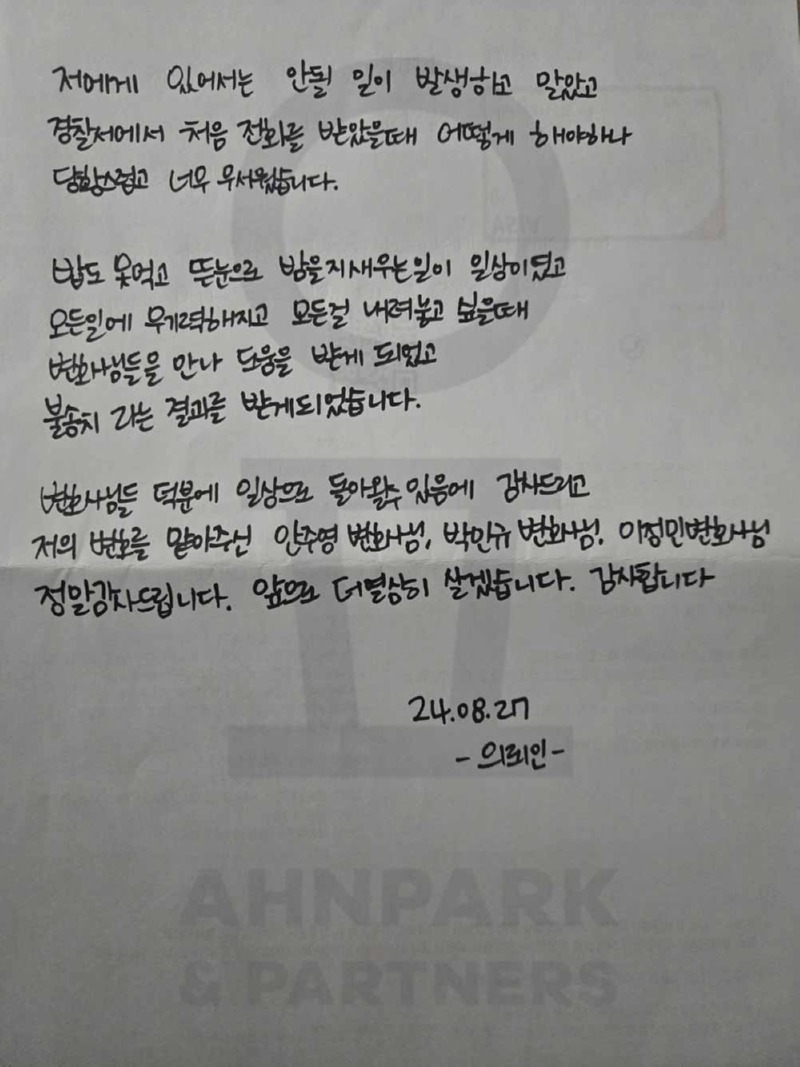 저에게 있어서는 안될 일이 발생하고 말았고
경찰서에서 처음 전화를 받았을때 어떻게 해야하나
당황스럽고 너무 무서웠습니다.
밥도 못먹고 뜬눈으로 밤을지새우는일이 일상이였고
모든일에 무기력해지고 모든걸 내려놓고 싶을때
변호사님들을 만나 도움을 받게 되었고
불송치 라는 결과를 받게되었습니다.
변호사님들 덕분에 일상으로 돌아올수있음에 감사드리고
저의 변호를 맡아주신 안주영 변호사님, 박민규 변호사님, 이정민변호사님
정말감사드립니다. 앞으로 더열심히 살겠습니다. 감사합니다
24.08.27
-의뢰인-
AHNPARK
& PARTNERS
VISA